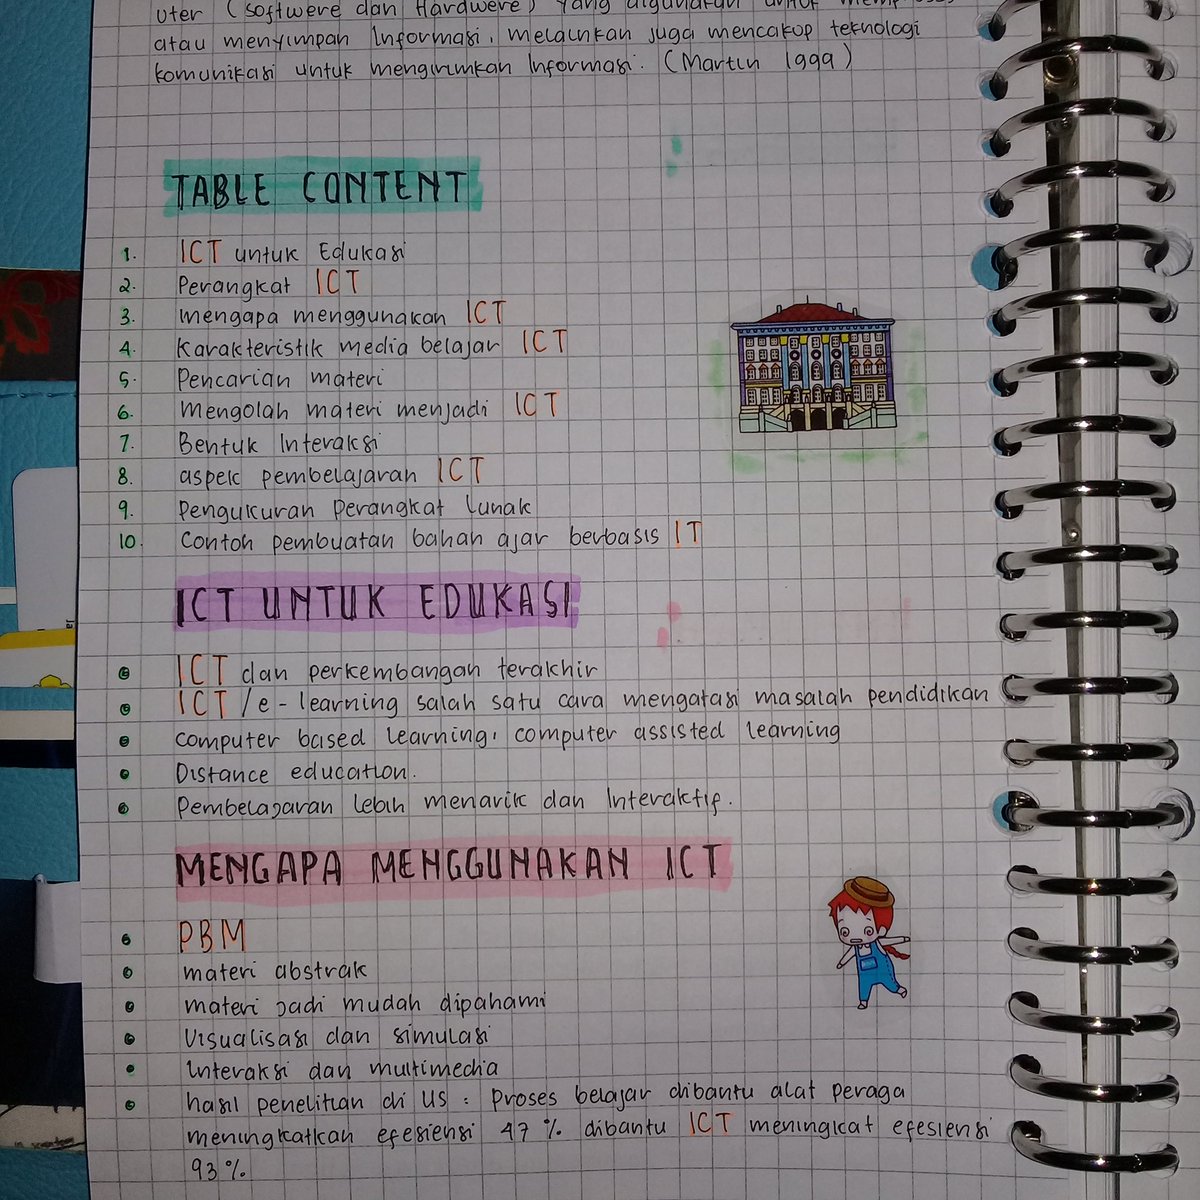 uter (Softwere dan Hardwere) yang digunakan untuk
atau menyimpan Informasi, melainkan juga mencakup teknologi
komunikasi untuk mengirimkan Informasi. (Martin 1999)
TABLE CONTENT
1. ICT untuk Edukasi
2. Perangkat ICT
3. mengapa menggunakan ICT
4. Karakteristik media belajar ICT
5. Pencarian materi
6. Mengolah materi menjadi ICT
7. Bentuk Interaksi
8. aspek pembelajaran ICT
9. Pengukuran Perangkat Lunak
10. Contoh pembuatan bahan ajar berbasis IT
ICT UNTUK EDUKASI
ICT dan perkembangan terakhir
ICT/e-learning salah satu cara mengatasi masalah pendidikan
Computer based learning, computer assisted learning
Distance education.
Pembelajaran lebih menarik dan Interaktif.
MENGAPA MENGGUNAKAN ICT
PBM
materi abstrak
materi jadi mudah dipahami
Visualisasi dan simulasi
Interaksi dan multimedia
hasil penelitian di US : Proses belajar dibantu alat peraga
meningkatkan efesiensi 47% dibantu ICT meningkat efesiensi
93%